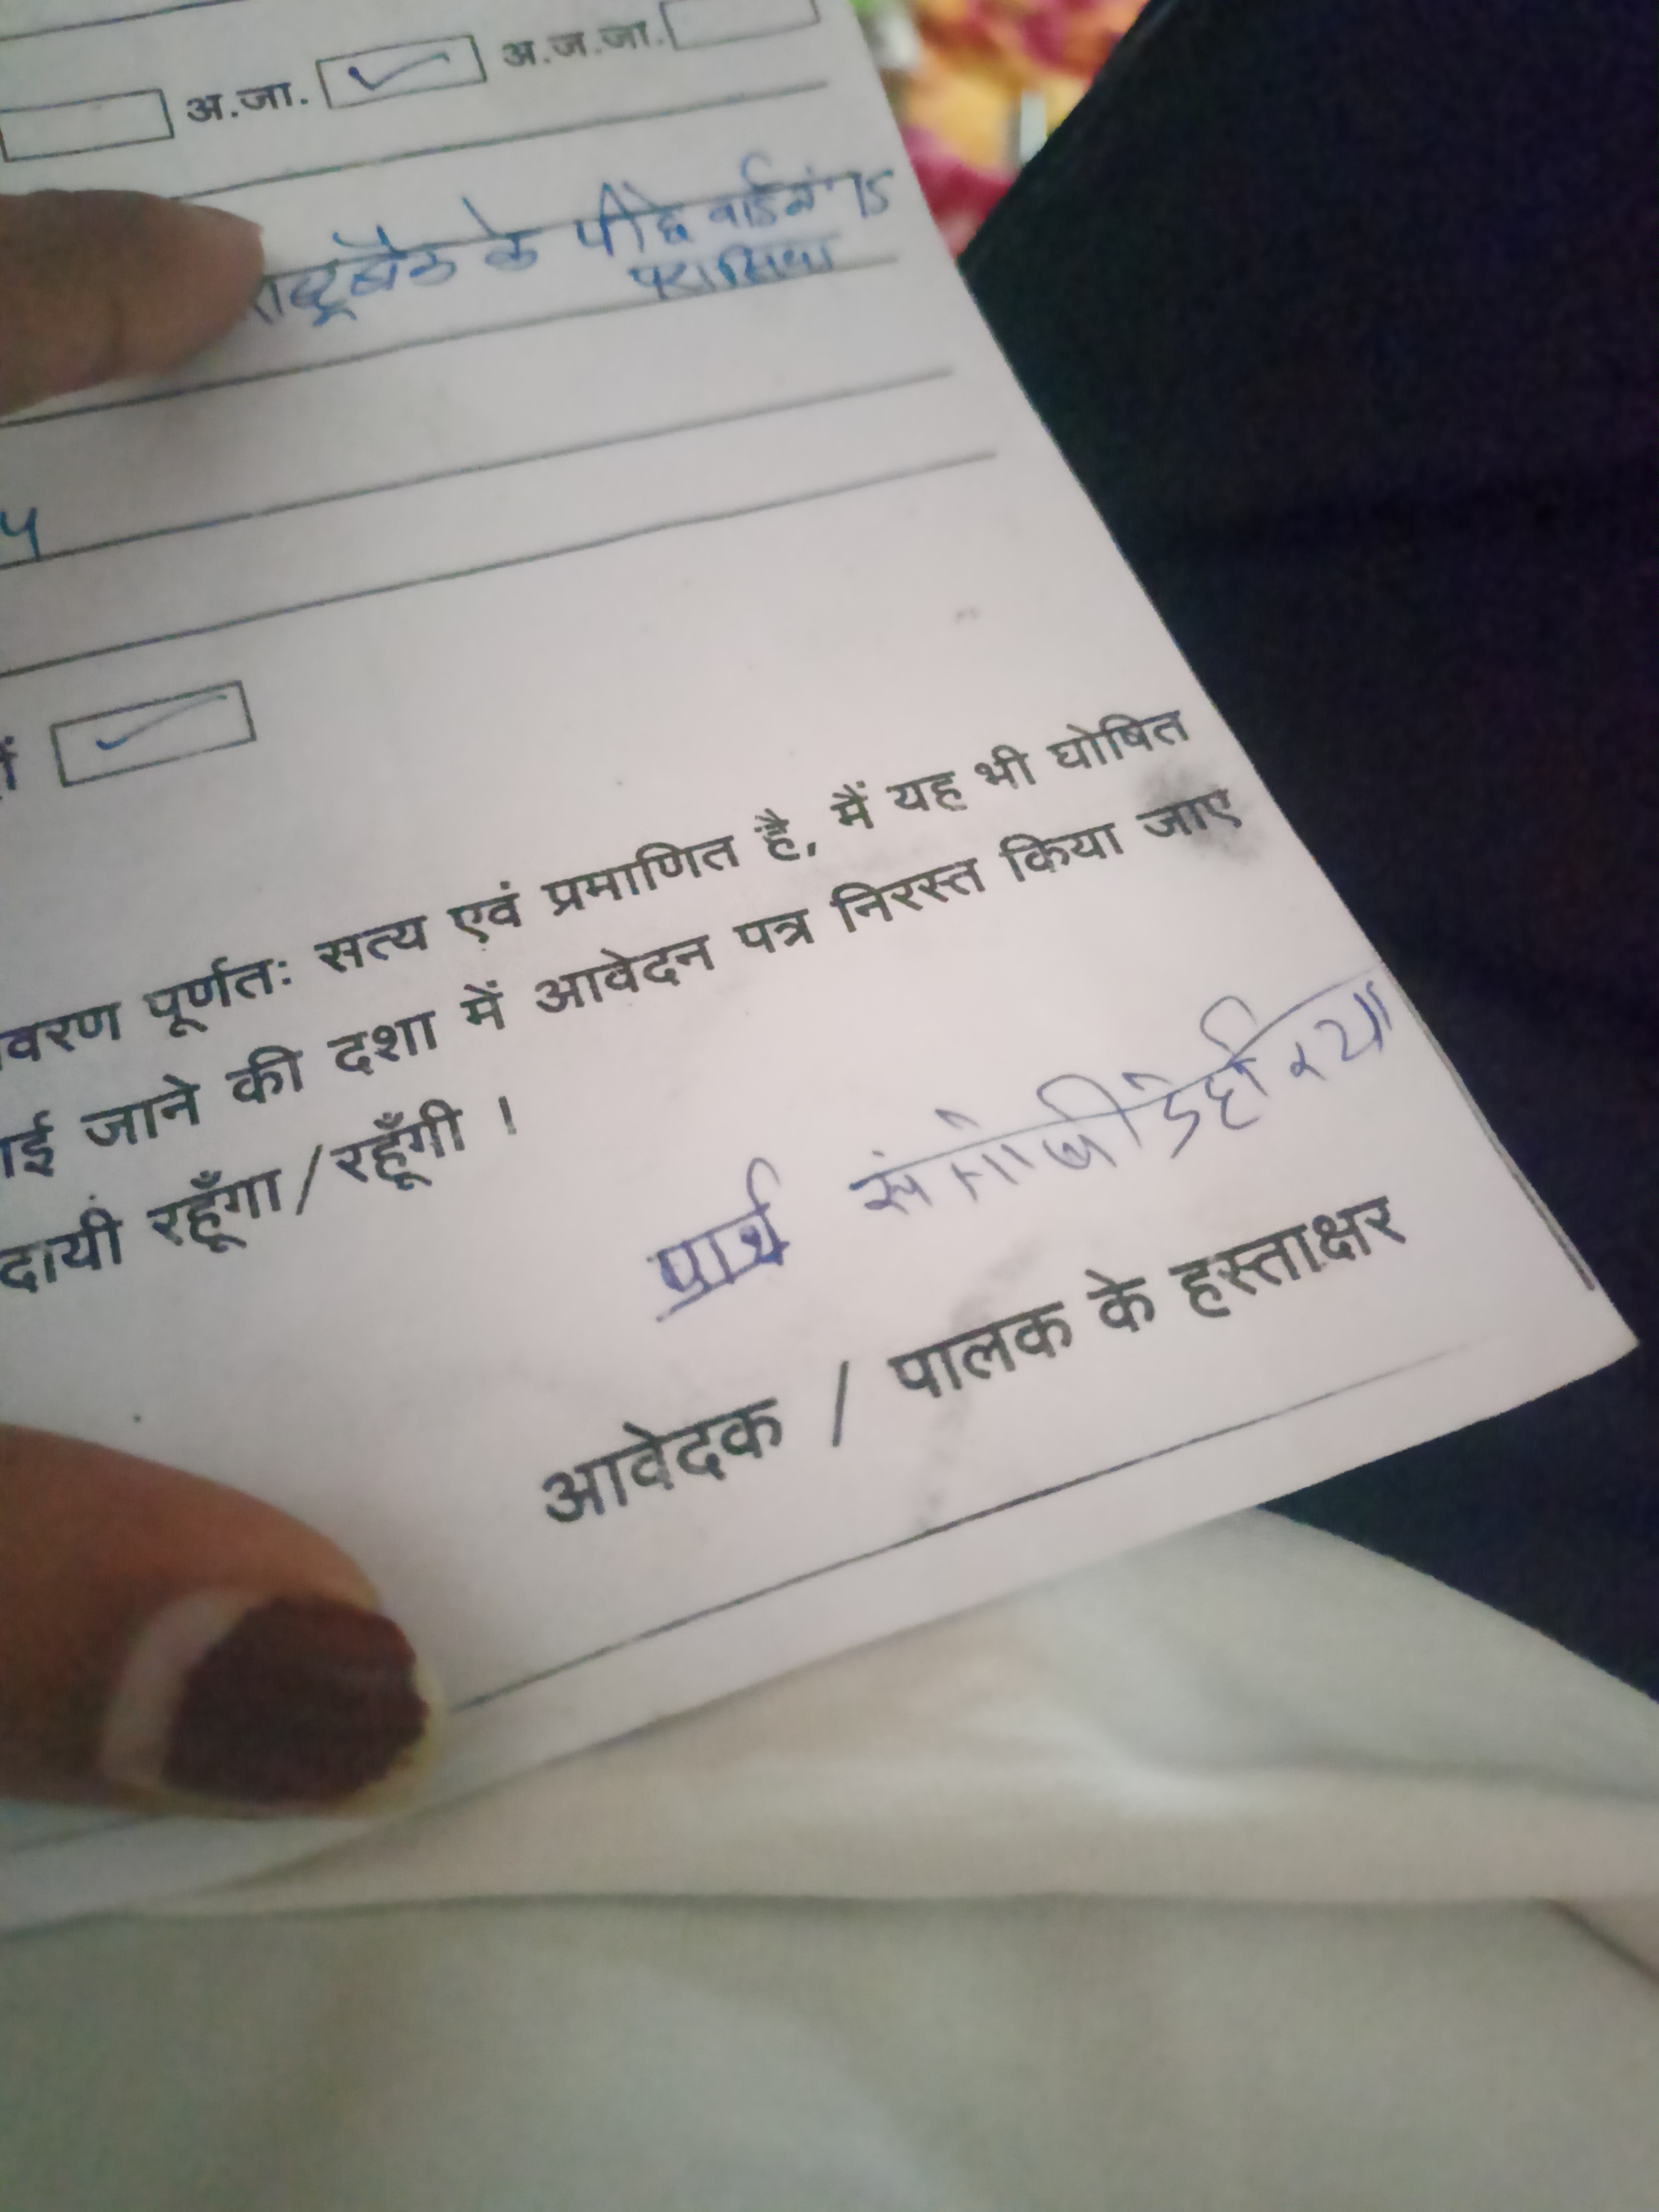 अ.जा. अ.ज.जा.
के पीछे वार्ड नं 15
परासिया
वरण पूर्णतः सत्य एवं प्रमाणित है, मैं यह भी घोषित
ाई जाने की दशा में आवेदन पत्र निरस्त किया जाए
दायी रहूँगा/रहूँगी ।
पार्थ
आवेदक / पालक के हस्ताक्षर